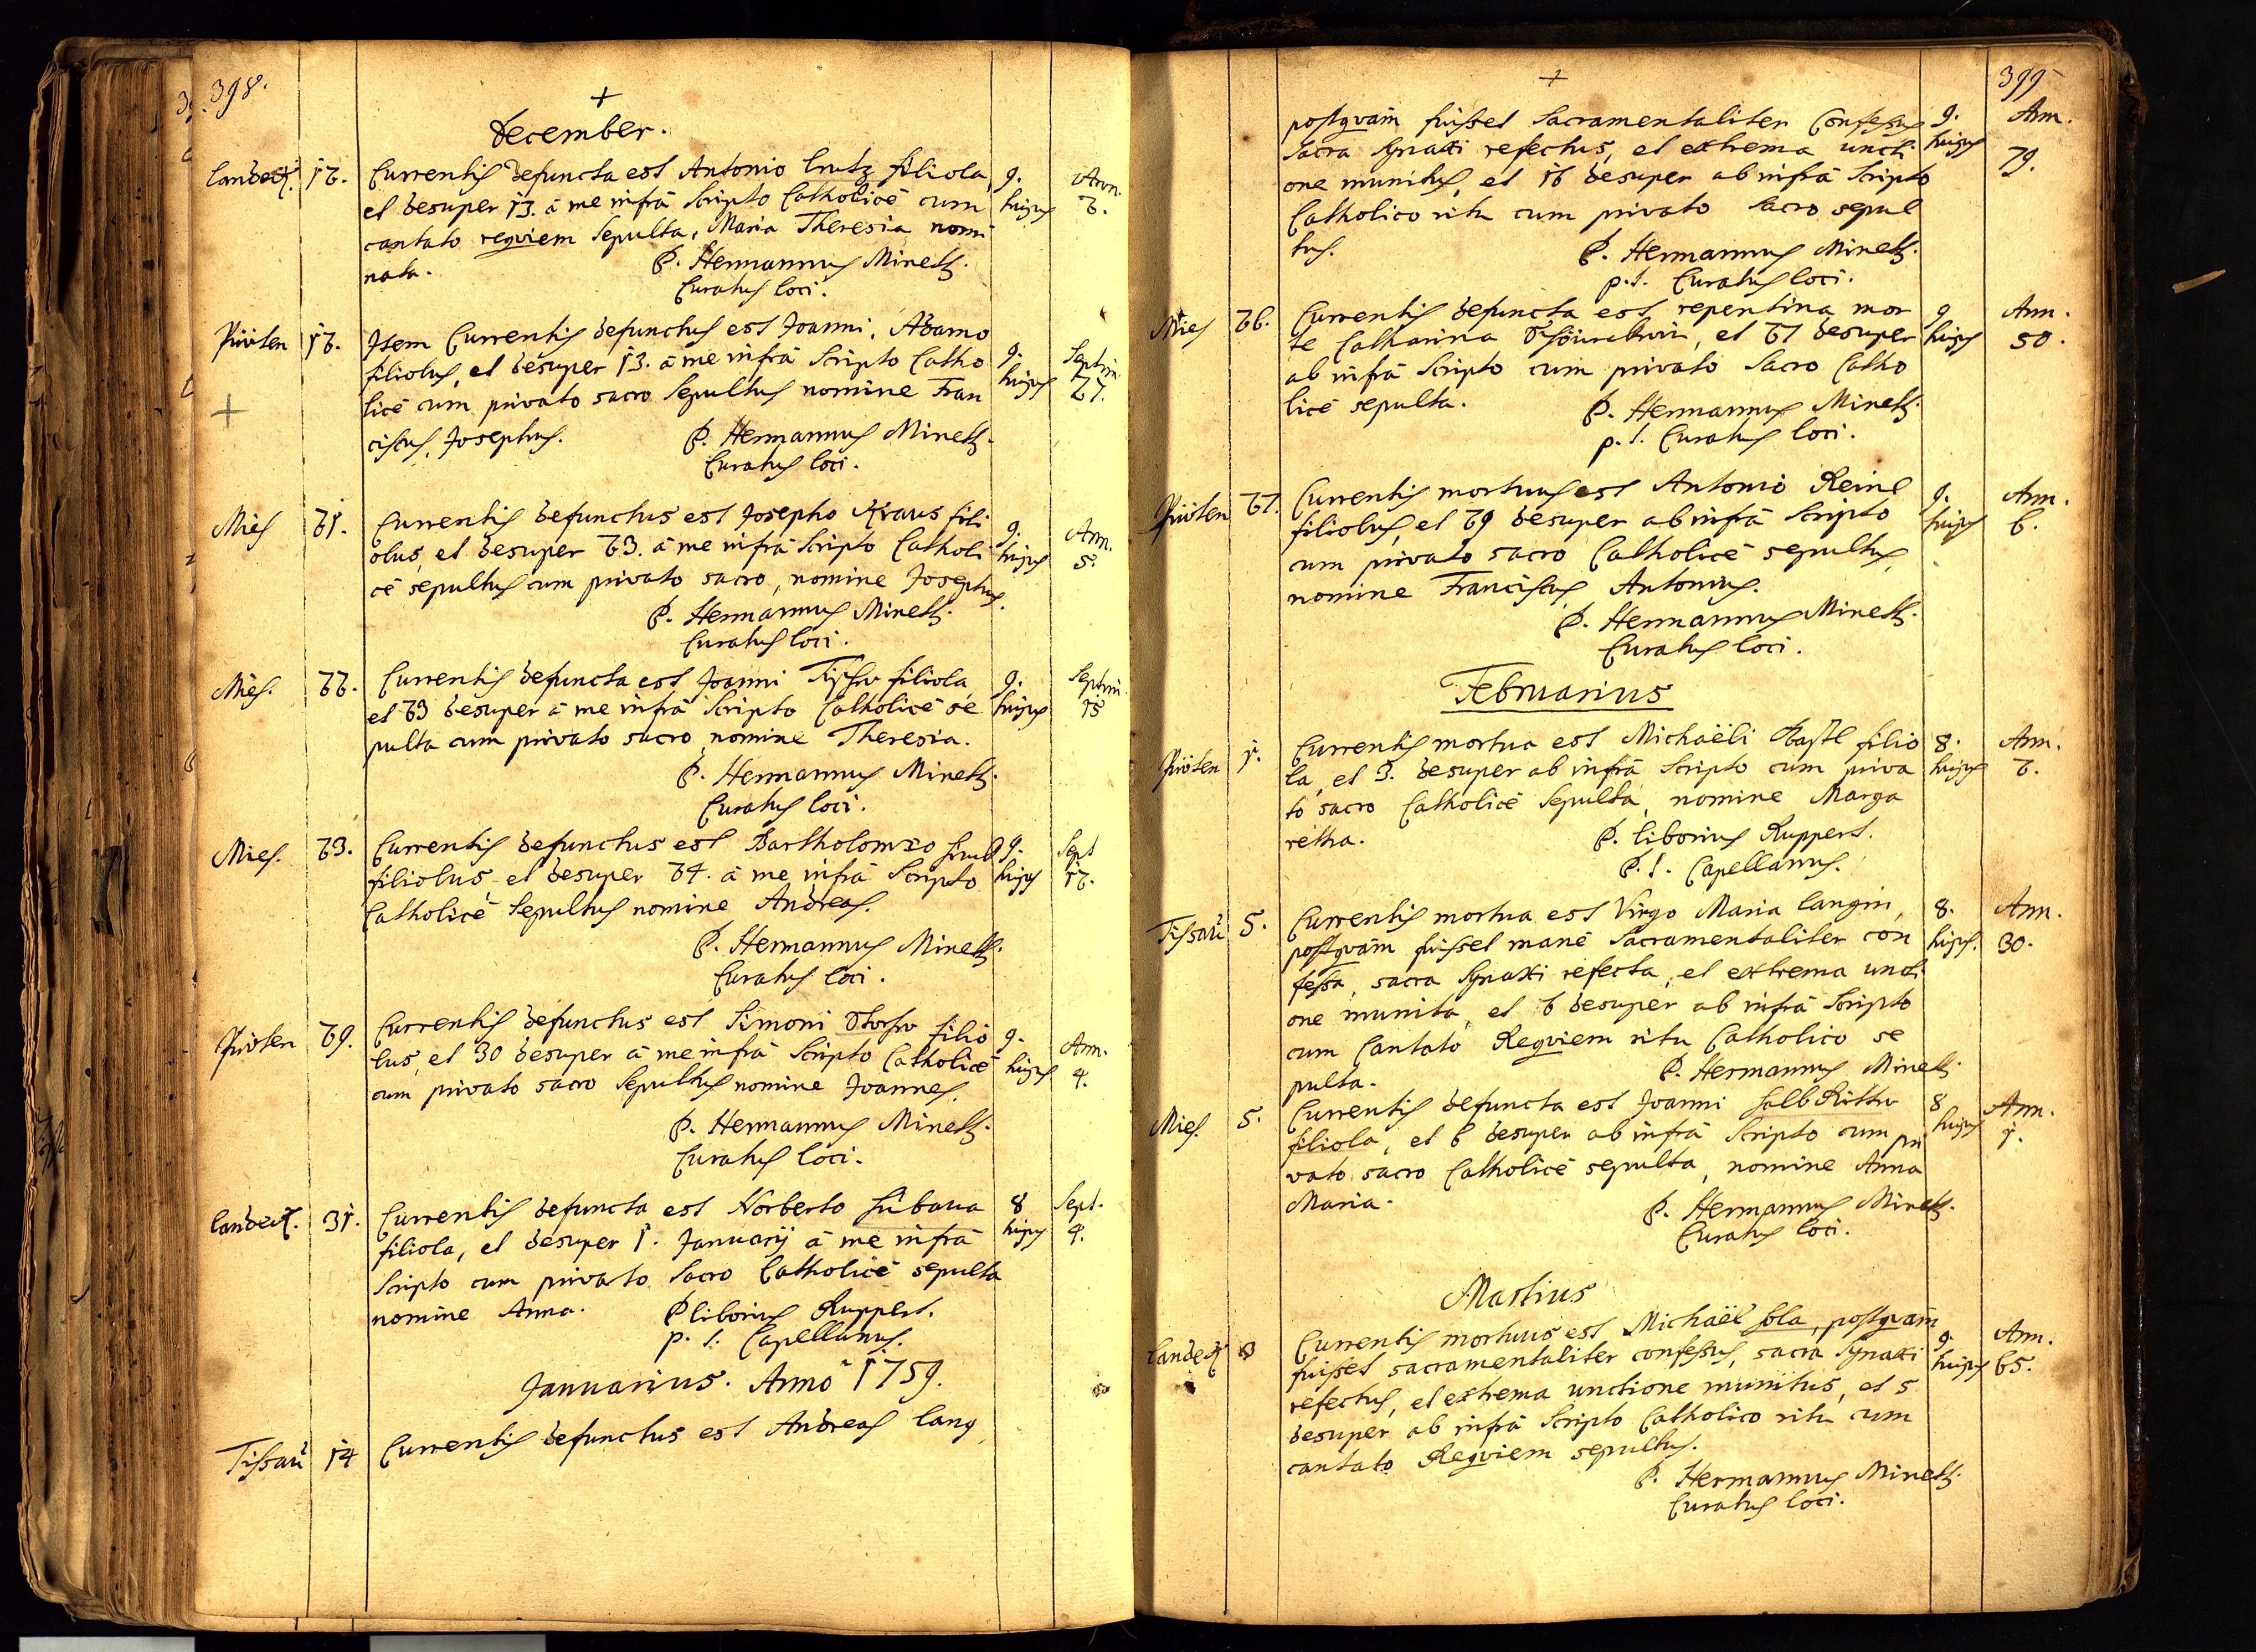 398.
+
December.
Landeck. 12. Currentis defuncta est Antonio Lutz filiola, 9. Ann.
et desuper 13. â me infrâ Scripto Catholicè cum hujus 2.
cantato requiem Sepulta, Maria Theresia nomi
nata. P. Hermannus Minetti.
Curatus loci.
Pröten 12. Item Currentis defunctus est Joanni Adamo
filiolus, et desuper 13. â me infrâ Scripto Catho 9. Septim.
licè cum privato sacro Sepultus nomine Fran hujus 27.
+ ciscus Josephus. P. Hermannus Minetti.
Curatus loci.
Mies 21. Currentis defunctus est Josepho Kraus fili 9. Ann.
olus, et desuper 23. â me infrâ Scripto Catholi hujus 5.
cè sepultus cum privato sacro, nomine Josephus.
P. Hermannus Minetti.
Curatus loci.
Mies. 22. Currentis defuncta est Joanni filiola, 9. Septim.
et 23 desuper â me infrâ Scripto Catholicè se hujus 15
pulta cum privato sacro nomine Theresia.
P. Hermannus Minetti.
Curatus loci.
Mies. 23. Currentis defunctus est Bartholomæo 9. Sept
filiolus, et desuper 24. â me infrâ Scripto hujus 12.
Catholicè Sepultus nomine Andreas.
P. Hermannus Minetti.
Curatus loci.
Pröten 29. Currentis defunctus est Simoni filio 9. Ann.
lus, et 30 desuper â me infrâ Scripto Catholicè hujus 4.
cum privato sacro Sepultus nomine Joannes.
P. Hermannus Minetti.
Curatus loci.
Landeck. 31. Currentis defuncta est Norberto 8 Sept.
filiola, et desuper 1. Januarij â me infrâ hujus 4.
Scripto cum privato Sacro Catholicè sepulta
nomine Anna. P Liborius Ruppert.
p. t. Capellanus.
Januarius. Anno 1759.
Tissau 14 Currentis defunctus est Andreas Lang
399
+
postquam fuisset Sacramentaliter Confessus 9. Ann.
Sacra Synaxi refectus, et extrema uncti hujus 79.
one munitus, et 16 desuper ab infrâ Scripto
Catholico ritu cum privato Sacro sepul
tus. P. Hermannus Minetti.
p.t. Curatus loci.
Mies 26. Currentis defuncta est repentina mor 9 Ann.
te Catharina, et 27 desuper hujus 50.
ab infrâ Scripto cum privato Sacro Catho
licè sepulta. P. Hermannus Minetti.
p. t. Curatus loci.
Pröten 27. Currentis mortuus est Antonio Reinl 9. Ann.
filiolus, et 29 desuper ab infrâ Scripto hujus 6.
cum privato sacro Catholicè sepultus,
nomine Franciscus Antonius.
P. Hermannus Minetti.
Curatus loci.
Februarius
Pröten 1. Currentis mortua est Michaëli filio 8. Ann.
la, et 3. desuper ab infrâ Scripto cum priva hujus 2.
to sacro Catholicè Sepulta, nomine Marga
retha. P. Liborius Ruppert.
P. t. Capellanus.
Tissau 5. Currentis mortua est Virgo Maria Langin, 8. Ann.
postquam fuisset manè Sacramentaliter con hujus. 30.
fessa, sacra Synaxi refecta, et extrema uncti
one munita, et 6 desuper ab infrâ Scripto
cum Cantato Requiem ritu Catholico se
pulta. P. Hermannus Minetti.
Mies. 5. Currentis defuncta est Joanni 8 Ann.
filiola, et 6 desuper ab infrâ Scripto cum pri hujus 1.
vato sacro Catholicè sepulta, nomine Anna
Maria. P. Hermannus Minetti.
Curatus loci.
Martius
Landeck 3 Currentis mortuus est Michaël, postquam 9. Ann.
fuisset sacramentaliter confessus, sacra Synaxi hujus 65.
refectus, et extrema unctione munitus, et 5
desuper ab infrâ Scripto Catholico ritu cum
cantato Requiem sepultus.
P. Hermannus Minetti.
Curatus loci.